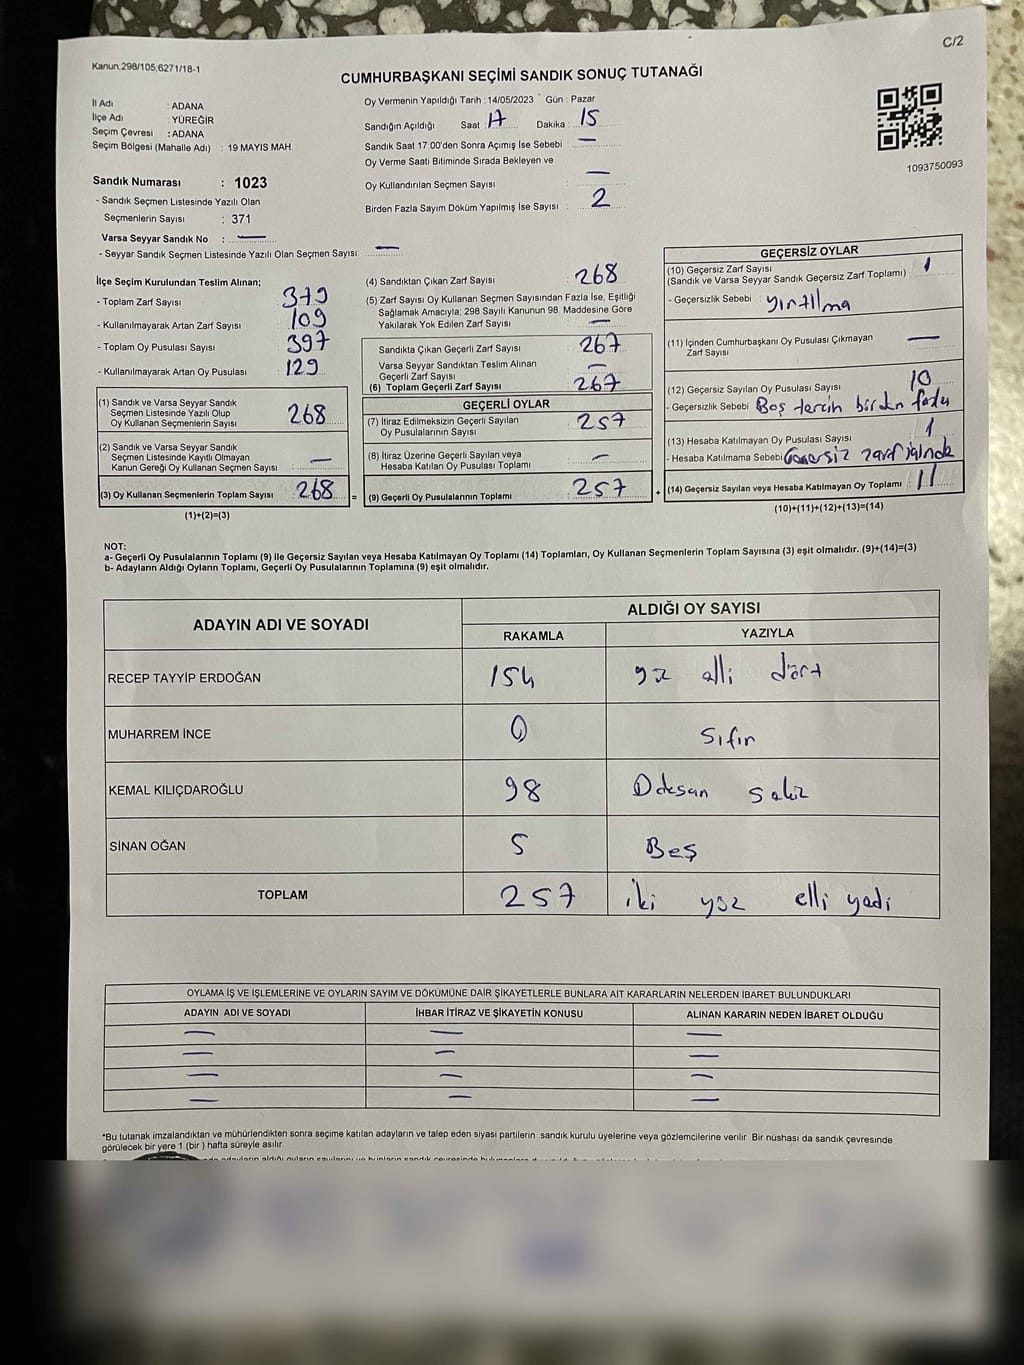 C/2
Kanun;298/105;6271/18-1
CUMHURBAŞKANI SEÇİMİ SANDIK SONUÇ TUTANAĞI
İl Adı : ADANA
İlçe Adı : YÜREĞİR
Seçim Çevresi : ADANA
Seçim Bölgesi (Mahalle Adı) : 19 MAYIS MAH.
Sandık Numarası : 1023
- Sandık Seçmen Listesinde Yazılı Olan
Seçmenlerin Sayısı : 371
Varsa Seyyar Sandık No : —
- Seyyar Sandık Seçmen Listesinde Yazılı Olan Seçmen Sayısı: —
Oy Vermenin Yapıldığı Tarih :14/05/2023 Gün : Pazar
Sandığın Açıldığı Saat : 17 Dakika : 15
Sandık Saat 17:00'den Sonra Açımış İse Sebebi : —
Oy Verme Saati Bitiminde Sırada Bekleyen ve
Oy Kullandırılan Seçmen Sayısı : —
Birden Fazla Sayım Döküm Yapılmış İse Sayısı : 2
1093750093
İlçe Seçim Kurulundan Teslim Alınan;
- Toplam Zarf Sayısı : 379
- Kullanılmayarak Artan Zarf Sayısı : 109
- Toplam Oy Pusulası Sayısı : 397
- Kullanılmayarak Artan Oy Pusulası : 129
(1) Sandık ve Varsa Seyyar Sandık
Seçmen Listesinde Yazılı Olup
Oy Kullanan Seçmenlerin Sayısı : 268
(2) Sandık ve Varsa Seyyar Sandık
Seçmen Listesinde Kayıtlı Olmayan
Kanun Gereği Oy Kullanan Seçmen Sayısı : —
(3) Oy Kullanan Seçmenlerin Toplam Sayısı : 268 =
(1)+(2)=(3)
(4) Sandıktan Çıkan Zarf Sayısı : 268
(5) Zarf Sayısı Oy Kullanan Seçmen Sayısından Fazla İse, Eşitliği
Sağlamak Amacıyla; 298 Sayılı Kanunun 98. Maddesine Göre
Yakılarak Yok Edilen Zarf Sayısı : —
Sandıkta Çıkan Geçerli Zarf Sayısı : 267
Varsa Seyyar Sandıktan Teslim Alınan
Geçerli Zarf Sayısı : —
(6) Toplam Geçerli Zarf Sayısı : 267
GEÇERLİ OYLAR
(7) İtiraz Edilmeksizin Geçerli Sayılan
Oy Pusulalarının Sayısı : 257
(8) İtiraz Üzerine Geçerli Sayılan veya
Hesaba Katılan Oy Pusulası Toplamı : —
(9) Geçerli Oy Pusulalarının Toplamı : 257 +
GEÇERSİZ OYLAR
(10) Geçersiz Zarf Sayısı
(Sandık ve Varsa Seyyar Sandık Geçersiz Zarf Toplamı) : 1
- Geçersizlik Sebebi : yırtılma
(11) İçinden Cumhurbaşkanı Oy Pusulası Çıkmayan
Zarf Sayısı : —
(12) Geçersiz Sayılan Oy Pusulası Sayısı : 10
- Geçersizlik Sebebi : Boş tercih birden fazla
(13) Hesaba Katılmayan Oy Pusulası Sayısı : 1
- Hesaba Katılmama Sebebi : Geçersiz zarf içinde
(14) Geçersiz Sayılan veya Hesaba Katılmayan Oy Toplamı : 11
(10)+(11)+(12)+(13)=(14)
NOT:
a- Geçerli Oy Pusulalarının Toplamı (9) ile Geçersiz Sayılan veya Hesaba Katılmayan Oy Toplamı (14) Toplamları, Oy Kullanan Seçmenlerin Toplam Sayısına (3) eşit olmalıdır. (9)+(14)=(3)
b- Adayların Aldığı Oyların Toplamı, Geçerli Oy Pusulalarının Toplamına (9) eşit olmalıdır.
ADAYIN ADI VE SOYADI ALDIĞI OY SAYISI
RAKAMLA YAZIYLA
RECEP TAYYİP ERDOĞAN 154 yüz elli dört
MUHARREM İNCE 0 Sıfır
KEMAL KILIÇDAROĞLU 98 Doksan sekiz
SİNAN OĞAN 5 Beş
TOPLAM 257 iki yüz elli yedi
OYLAMA İŞ VE İŞLEMLERİNE VE OYLARIN SAYIM VE DÖKÜMÜNE DAİR ŞİKAYETLERLE BUNLARA AİT KARARLARIN NELERDEN İBARET BULUNDUKLARI
ADAYIN ADI VE SOYADI İHBAR İTİRAZ VE ŞİKAYETİN KONUSU ALINAN KARARIN NEDEN İBARET OLDUĞU
— — —
— — —
— — —
— — —
*Bu tutanak imzalandıktan ve mühürlendikten sonra seçime katılan adayların ve talep eden siyasi partilerin sandık kurulu üyelerine veya gözlemcilerine verilir. Bir nüshası da sandık çevresinde
görülecek bir yere 1 (bir ) hafta süreyle asılır.